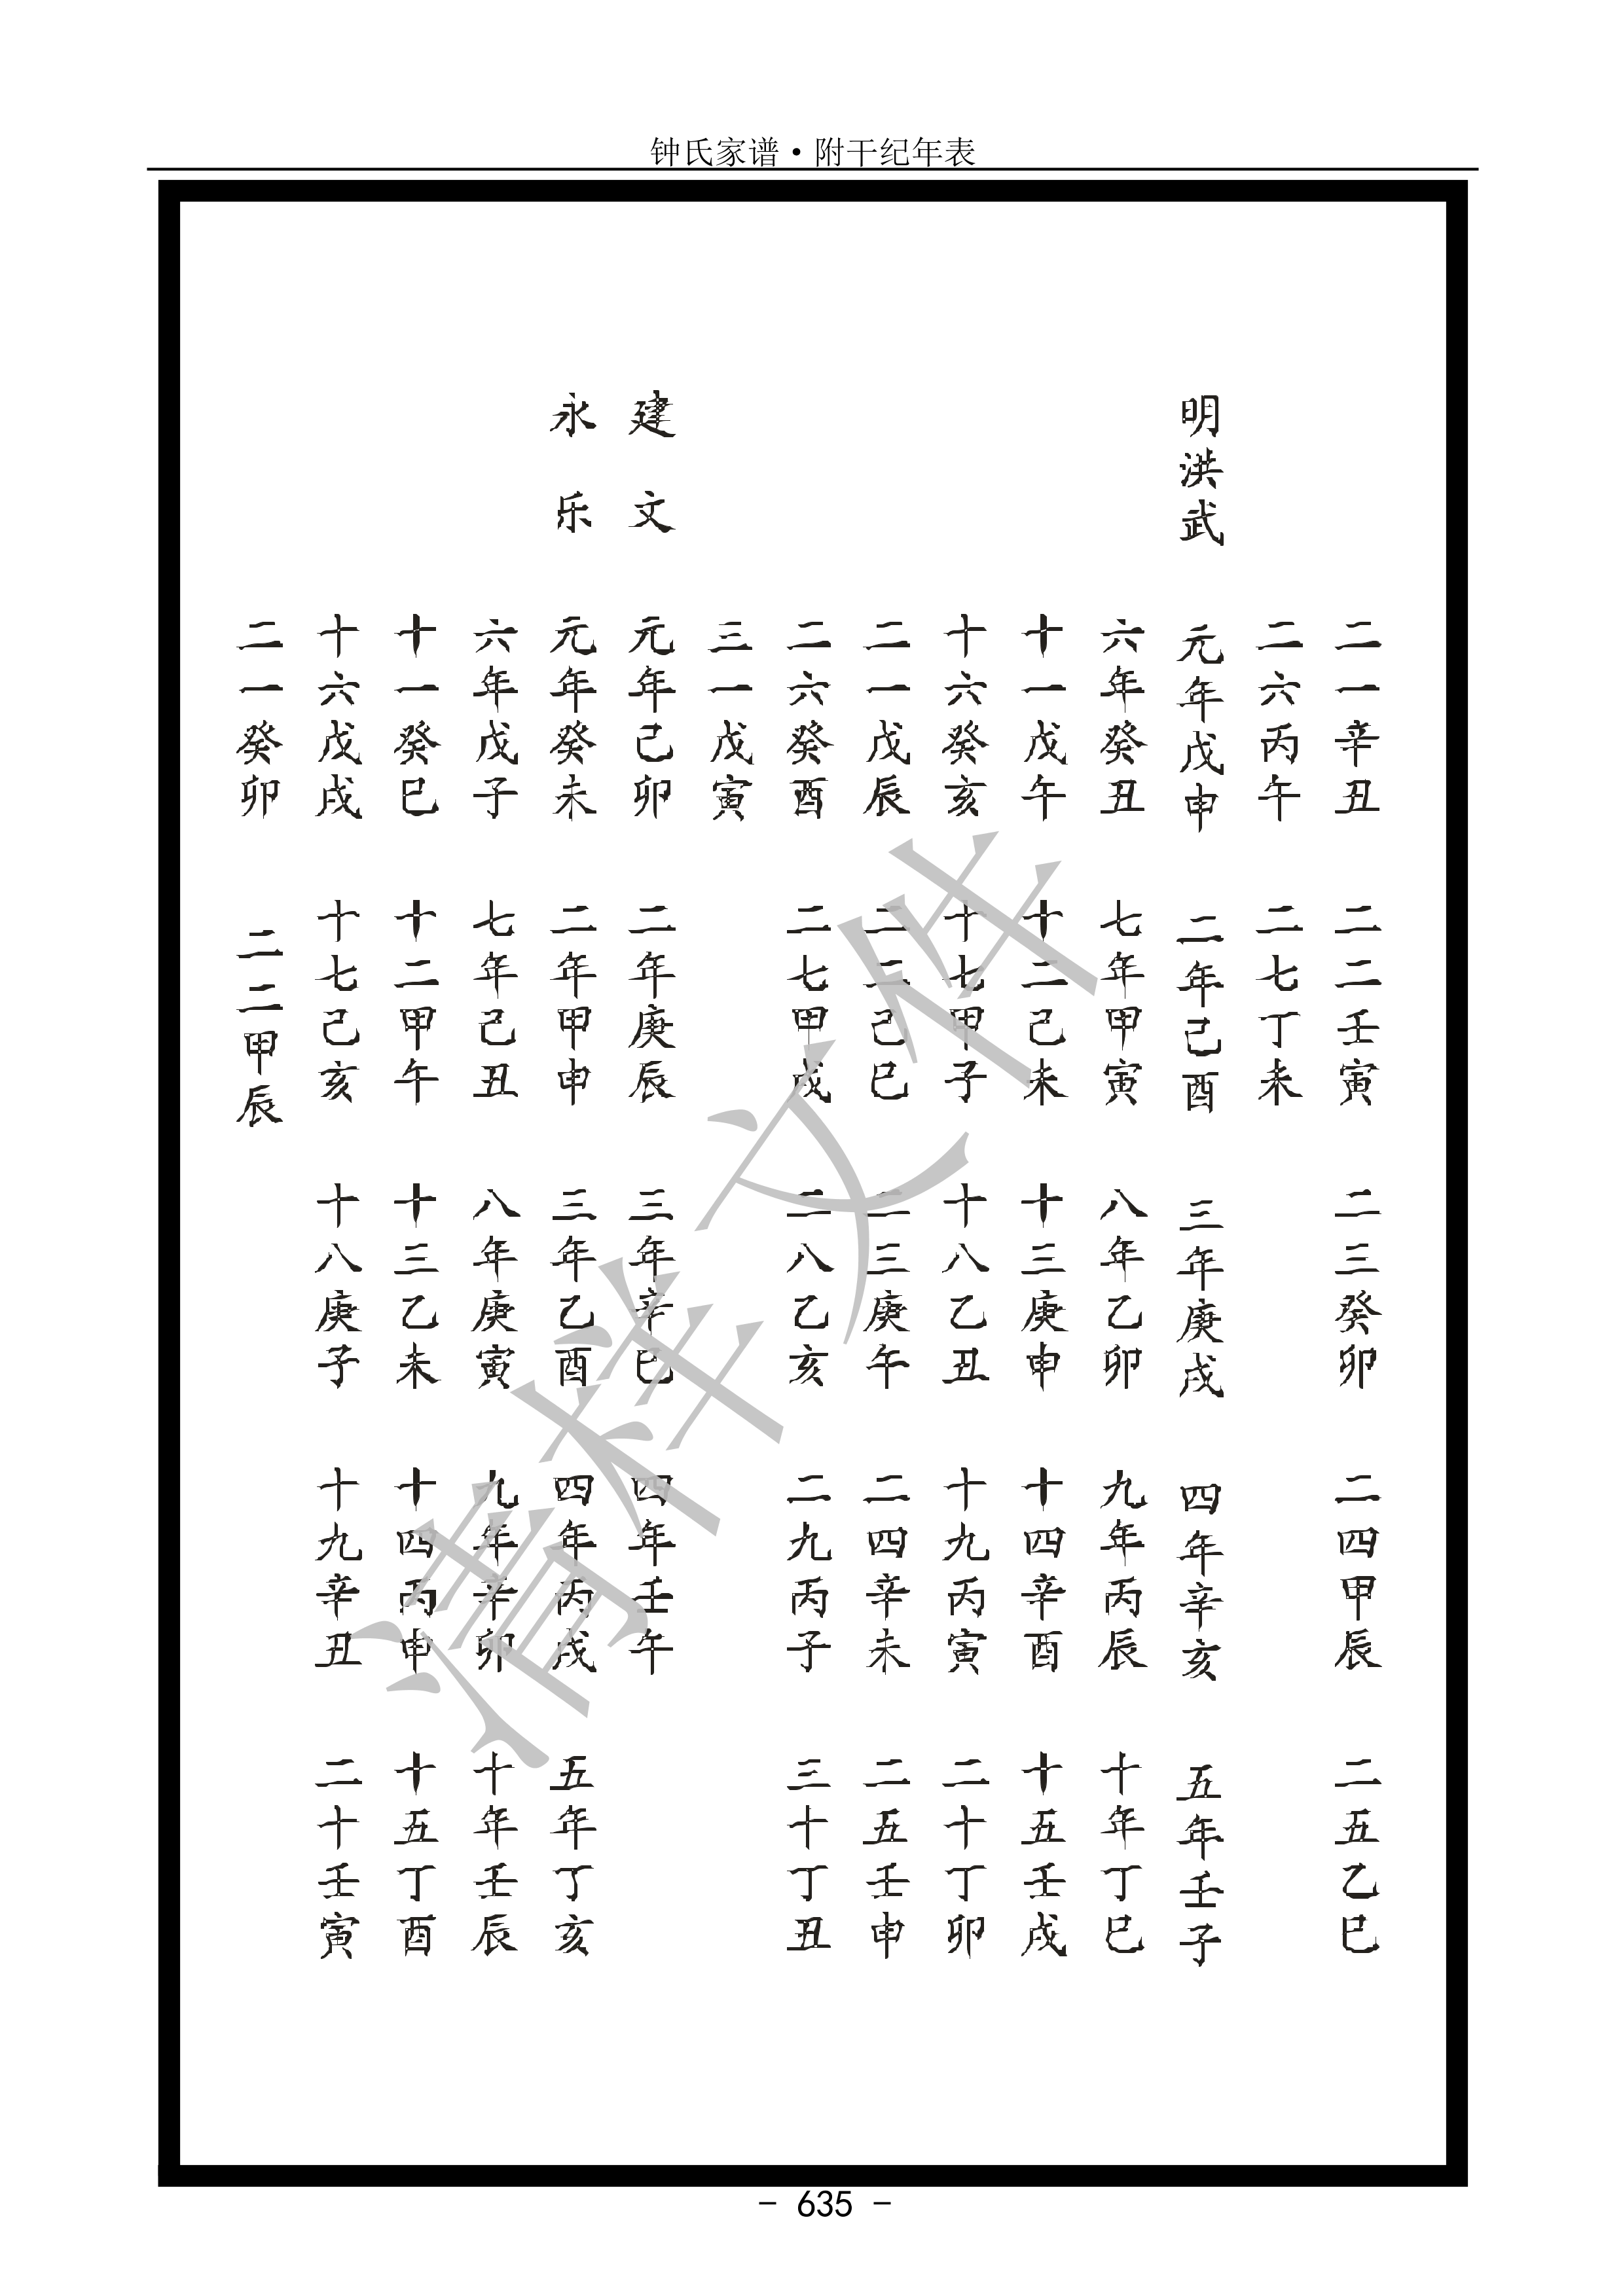 钟氏家谱·附干纪年表
二一辛丑 二二壬寅 二三癸卯 二四甲辰 二五乙巳
二六丙午 二七丁未
明洪武 元年戊申 二年己酉 三年庚戌 四年辛亥 五年壬子
六年癸丑 七年甲寅 八年乙卯 九年丙辰 十年丁巳
十一戊午 十二己未 十三庚申 十四辛酉 十五壬戌
十六癸亥 十七甲子 十八乙丑 十九丙寅 二十丁卯
二一戊辰 二二己巳 二三庚午 二四辛未 二五壬申
二六癸酉 二七甲戌 二八乙亥 二九丙子 三十丁丑
三一戊寅
建文 元年己卯 二年庚辰 三年辛巳 四年壬午
永乐 元年癸未 二年甲申 三年乙酉 四年丙戌 五年丁亥
六年戊子 七年己丑 八年庚寅 九年辛卯 十年壬辰
十一癸巳 十二甲午 十三乙未 十四丙申 十五丁酉
十六戊戌 十七己亥 十八庚子 十九辛丑 二十壬寅
二一癸卯 二二甲辰
清样文件
- 635 -